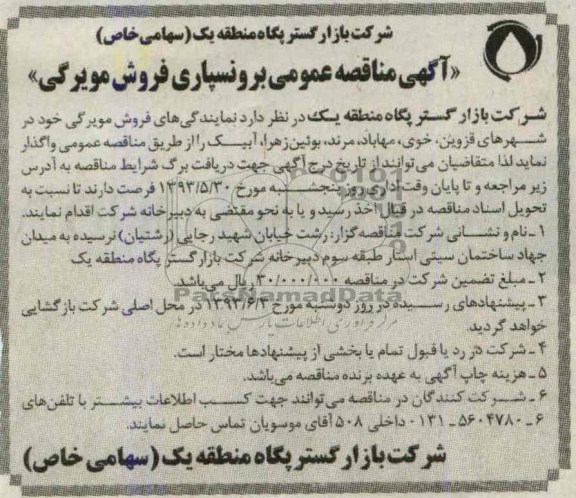 شرکت بازار گستر پگاه منطقه یک (سهامی خاص)
«آگهی مناقصه عمومی برونسپاری فروش مویرگی»
شرکت بازار گستر پگاه منطقه یک در نظر دارد نمایندگی‌های فروش مویرگی خود در
شهرهای قزوین، خوی، مهاباد، مرند، بوئین‌زهرا، آبیک را از طریق مناقصه عمومی واگذار
نماید لذا متقاضیان می‌توانند از تاریخ درج آگهی جهت دریافت برگ شرایط مناقصه به آدرس
زیر مراجعه و تا پایان وقت اداری روز پنجشنبه مورخ ۱۳۹۳/۵/۳۰ فرصت دارند تا نسبت به
تحویل اسناد مناقصه در قبال اخذ رسید و یا به نحو مقتضی به دبیرخانه شرکت اقدام نمایند.
۱ـ نام و نشانی شرکت مناقصه‌گزار: رشت خیابان شهید رجایی (رشتیان) نرسیده به میدان
جهاد ساختمان سیتی استار طبقه سوم دبیرخانه شرکت بازار گستر پگاه منطقه یک
۲ـ مبلغ تضمین شرکت در مناقصه ۳۰/۰۰۰/۰۰۰ ریال می‌باشد.
ParsNamadData
۳ـ پیشنهادهای رسیده در روز دوشنبه مورخ ۱۳۹۳/۶/۳ در محل اصلی شرکت بازگشایی
خواهد گردید.
مرکز فرآوری اطلاعات پارس نماد داده‌ها
۴ـ شرکت در رد یا قبول تمام یا بخشی از پیشنهادها مختار است.
۵ـ هزینه چاپ آگهی به عهده برنده مناقصه می‌باشد.
۶ـ شرکت کنندگان در مناقصه می‌توانند جهت کسب اطلاعات بیشتر با تلفن‌های
۶ـ ۵۶۰۴۷۸۰ـ ۰۱۳۱ داخلی ۵۰۸ آقای موسویان تماس حاصل نمایند.
شرکت بازار گستر پگاه منطقه یک (سهامی خاص)